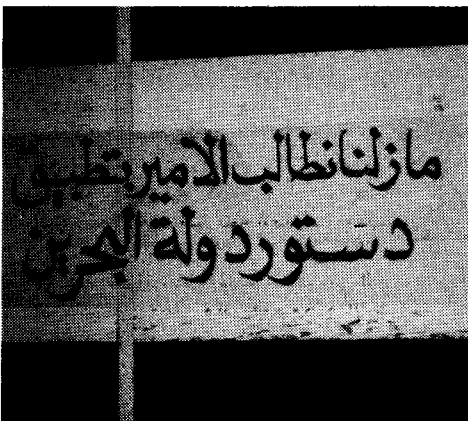 مازلنا نطالب الامير بتطبيق
دستور دولة البحرين